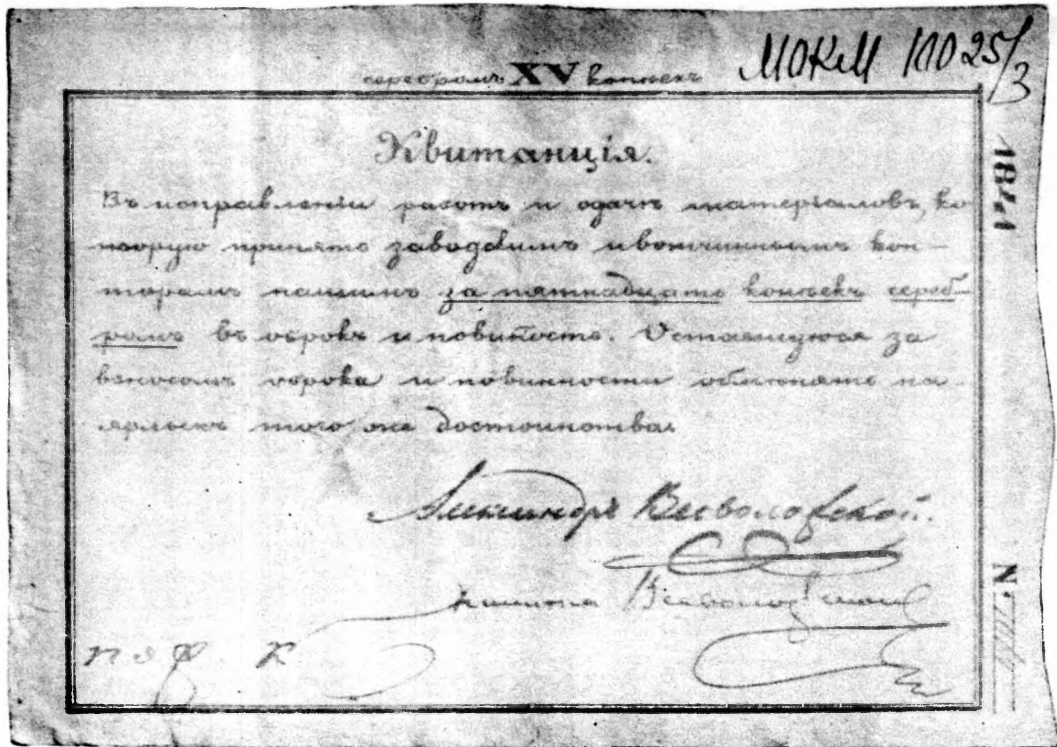 МОКМ КП 025/3
серебромъ XV копѣекъ
Квитанція.
Въ исправленіи работъ и сдачѣ матеріаловъ, ко
торую принять заводскимъ и вотчиннымъ кон-
торамъ нашимъ за пятнадцать копѣекъ сереб-
ромъ въ оброкъ и повиность. Оставшуюся за
взносомъ оброка и повинности обмѣнять на
ярлыкъ того же достоинства.
Александръ Всеволожской.
Всеволожской
184
N.